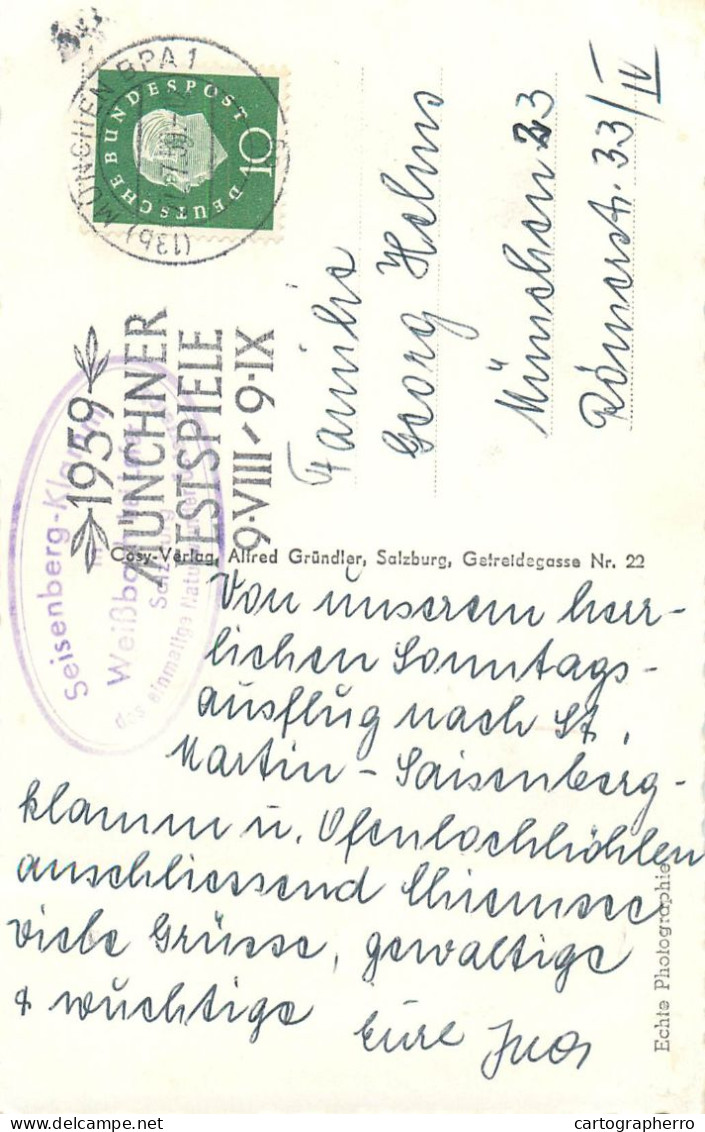 (13b) MÜNCHEN BPA 1
DEUTSCHE BUNDESPOST
10
1959
MÜNCHNER
FESTSPIELE
9·VIII–9·IX
Seisenberg-Klamm
Weißbach
das einmalige Naturwunder
Familie
Georg Helms
München 23
Römerstr. 33/IV
Cosy-Verlag, Alfred Gründler, Salzburg, Getreidegasse Nr. 22
Von unserem herr-
lichen Sonntags-
ausflug nach St.
Martin – Saisenberg-
klamm u. Ofenlochhöhlen
anschliessend Chiemsee
viele Grüsse, gewaltige
& wuchtige
Eure
Echte Photographie
cartographerro